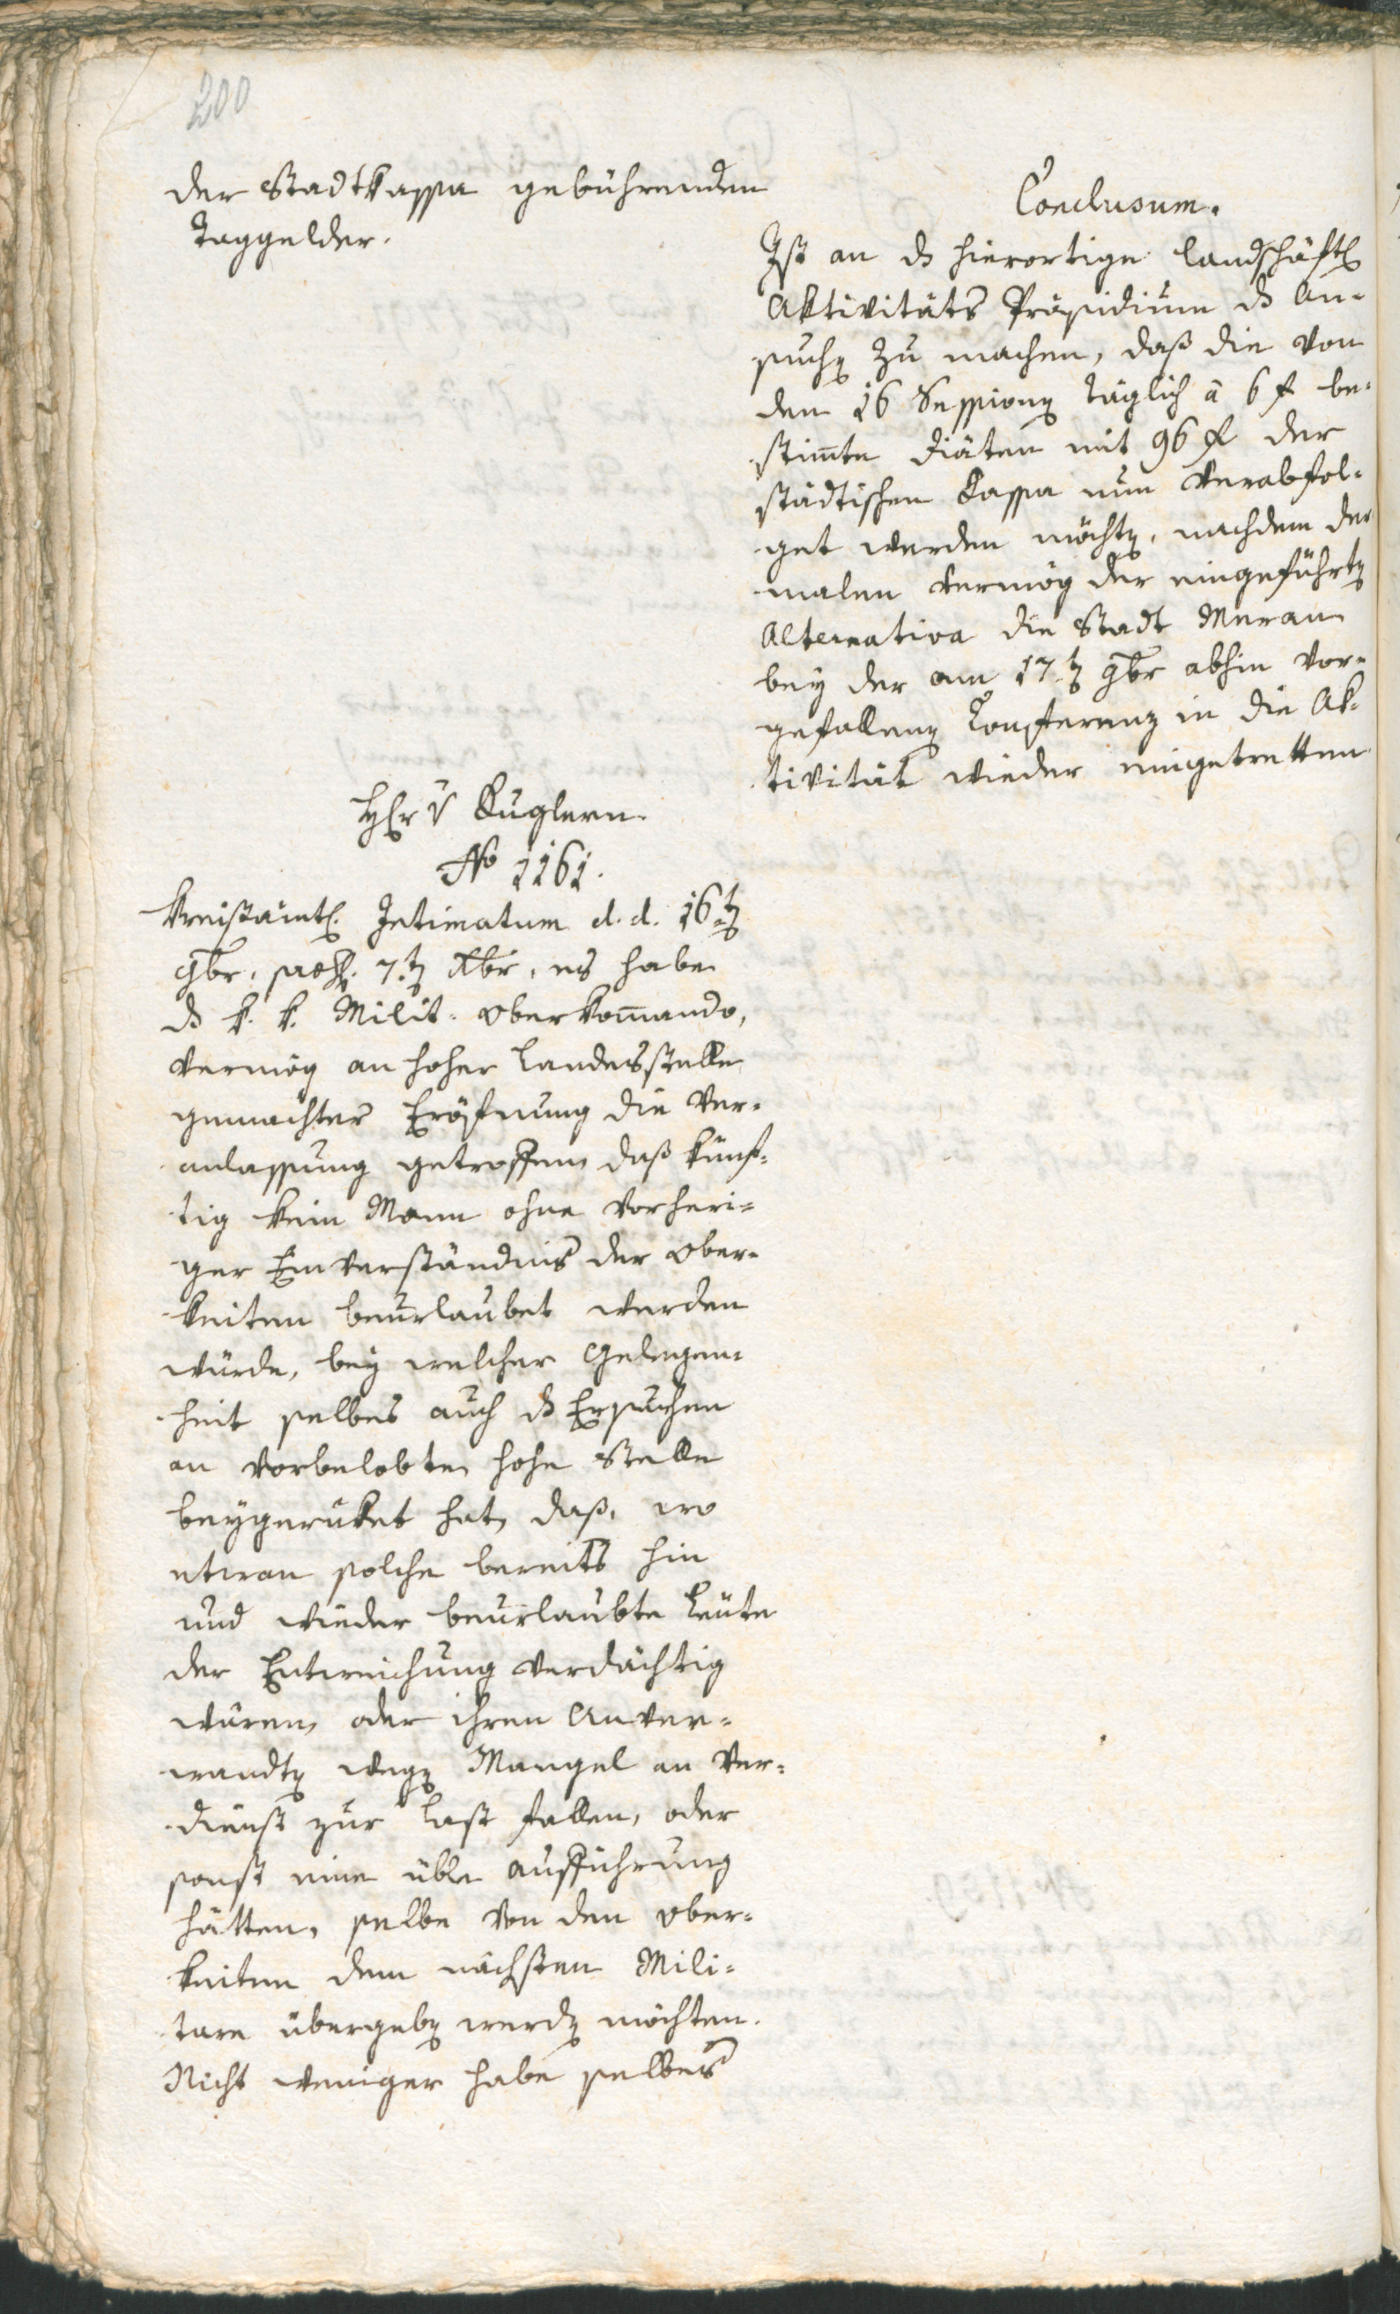 200
der Stadtkassa gebührenden
Taggelder.
Conclusum.
Ist an ds hierortige landschäftl
Aktivitäts Präsidium ds An-
suchen zu machen, daß die von
den 16 Sessionen täglich à 6 f be-
stimte Diäten mit 96 f der
städtischen Kassa nun verabfol-
get werden möchten, nachdem der
malen vermög der eingeführten
Alternativa die Stadt Meran
bey der am 17ten 9br abhin vor-
gefallenen Conferenz in die Ak-
tivität wieder eingetretten
Hr v Kuglern.
No 1161.
Kreisämtl. Intimatum d. d. 16ten
9br, 7.ten Xbr, es habe
ds k. k. Milit. Oberkomando,
vermög an hoher Landesstelle
gemachter Eröfnung die Ver-
anlassung getroffen, daß künf-
tig kein Mann ohne vorheri-
ger Einverständnis der Ober-
keiten beurlaubet werden
würde, bey welcher Gelegen-
heit selbes auch ds Ersuchen
an vorbelobte hohe Stelle
beygerüket hat, daß, wo
etwan solche bereits hin
und wieder beurlaubte Leute
der Entweichung verdächtig
wären, oder ihren Anver-
wandten wegen Mangel an Ver-
dienst zur Last fallen, oder
sonst eine üble Aufführung
hätten, selbe von den Ober-
keiten dem nächsten Mili-
tare übergeben werden möchten.
Nicht weniger habe selbes